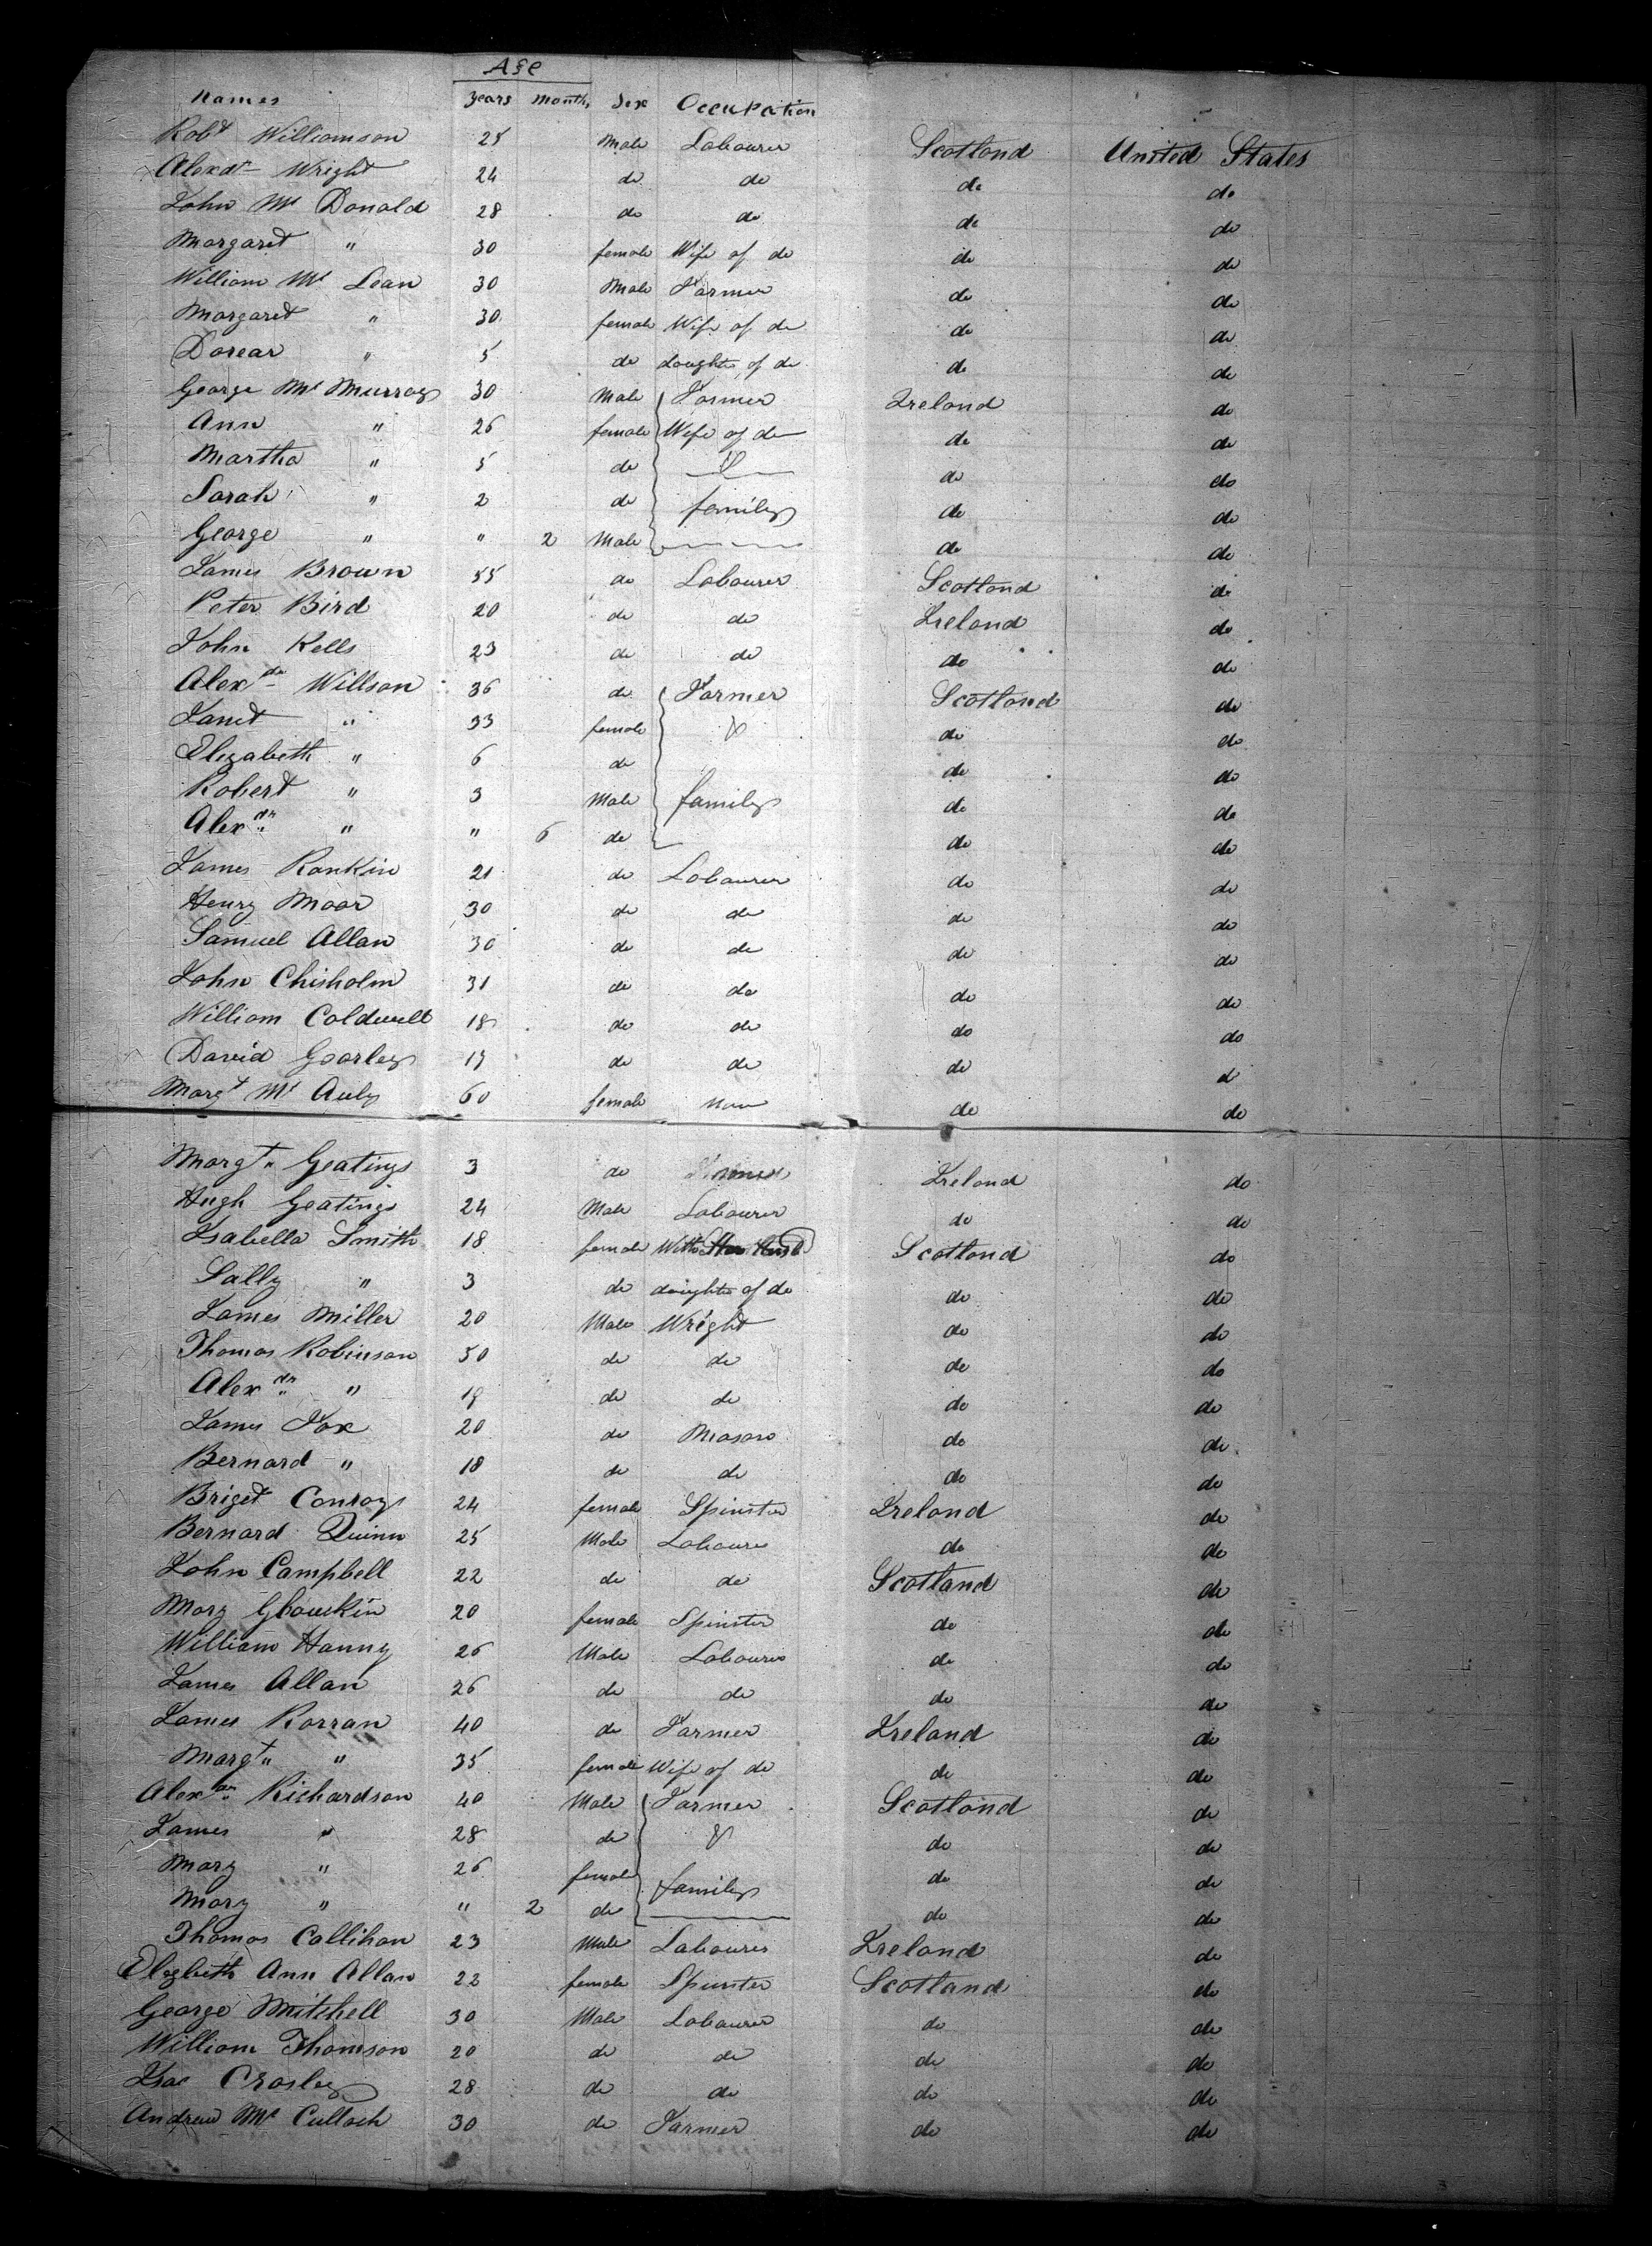 Age
Names Years Months Sex Occupation
Robt Williamson 25 Male Labourer Scotland United States
Alexdr Wright 24 do do do do
John Mc Donald 28 do do do do
Margaret " 30 female Wife of do do do
William Mc Lean 30 Male Farmer do do
Margaret " 30 female Wife of do do do
Dorear " 5 do daughter of do do do
George Mc Murray 30 Male Farmer Ireland do
Ann " 26 female Wife of do do do
Martha " 5 do & do do
Sarah " 2 do family do do
George " " 2 Male do do
James Brown 55 do Labourer Scotland do
Peter Bird 20 do do Ireland do
John Kells 23 do do do do
Alexdr Willson 36 do Farmer Scotland do
Janet " 33 female & do do
Elizabeth " 6 do do do
Robert " 3 Male family do do
Alexdr " " 6 do do do
James Rankin 21 do Labourer do do
Henry Moor 30 do do do do
Samuel Allan 30 do do do do
John Chisholm 31 do do do do
William Coldwell 18 do do do do
David Goorley 19 do do do d
Margt Mc Auly 60 female do do
Margt Geatings 3 do Ireland do
Hugh Geatings 24 Male Labourer do do
Isabella Smith 18 female With Her Husbd Scotland do
Sally " 3 do daughter of do do do
James Miller 20 Male Wright do do
Thomas Robinson 50 do do do do
Alexdr " 19 do do do do
James Fox 20 do Mason do do
Bernard " 18 do do do do
Briget Conroy 24 female Spinster Ireland do
Bernard Quinn 25 Male Labourer do do
John Campbell 22 do do Scotland do
Mary Glouskin 20 female Spinster do do
William Hanny 26 Male Labourer do do
James Allan 26 do do do do
James Korran 40 do Farmer Ireland do
Margt " 35 female Wife of do do do
Alexdr Richardson 40 Male Farmer Scotland do
James " 28 do & do do
Mary " 26 female family do do
Mary " " 2 do do do
Thomas Callihan 23 Male Labourer Ireland do
Elizbeth Ann Allan 22 female Spinster Scotland do
George Mitchell 30 Male Labourer do do
William Thomson 20 do do do do
Isac Crosley 28 do do do do
Andrew Mc Culloch 30 do Farmer do do